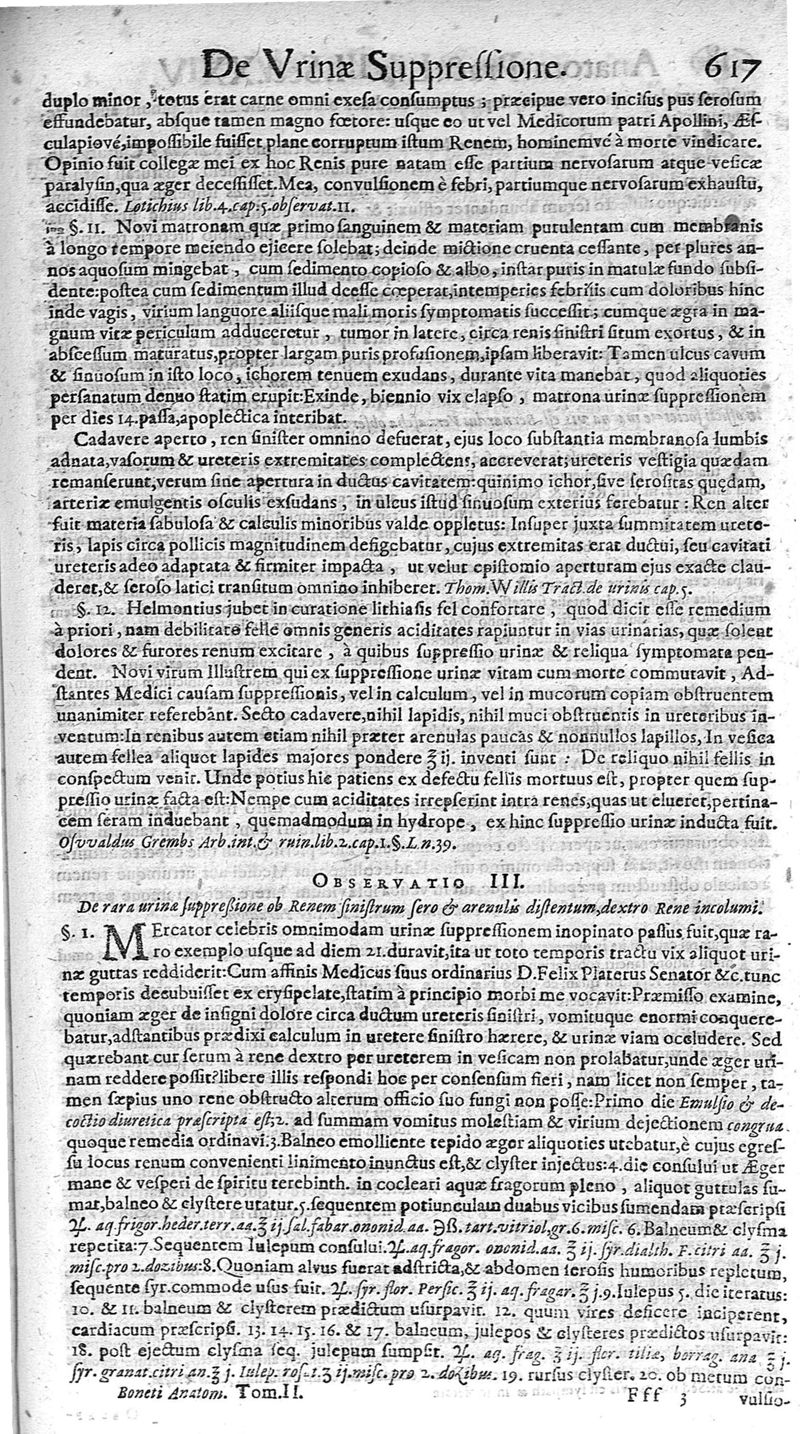 De Vrinæ Suppreſſione. 617
duplo minor, totus erat carne omni exeſa conſumptus; præcipue vero inciſus pus ſeroſum
effundebatur, absque tamen magno fœtore: usque eo ut vel Medicorum patri Apollini, Æſ-
culapiové, impoſſibile fuiſſet plane corruptum iſtum Renem, hominemvé à morte vindicare.
Opinio fuit collegæ mei ex hoc Renis pure natam eſſe partium nervoſarum atque veſicæ
paralyſin, qua æger deceſſiſſet. Mea, convulſionem è febri, partiumque nervoſarum exhauſtu,
accidiſſe. Lotichius lib. 4. cap. 5. obſervat. 11.
§. 11. Novi matronam quæ primo ſanguinem & materiam purulentam cum membranis
à longo tempore meiendo ejicere ſolebat; deinde mictione cruenta ceſſante, per plures an-
nos aquoſum mingebat, cum ſedimento copioſo & albo, inſtar puris in matulæ fundo ſubſi-
dente: poſtea cum ſedimentum illud deeſſe cœperat, intemperies febrilis cum doloribus hinc
inde vagis, virium languore aliiſque mali moris ſymptomatis ſucceſſit; cumque ægra in ma-
gnum vitæ periculum adduceretur, tumor in latere, circa renis ſiniſtri ſitum exortus, & in
abſceſſum maturatus, propter largam puris profuſionem, ipſam liberavit: Tamen ulcus cavum
& ſinuoſum in iſto loco, ichorem tenuem exudans, durante vita manebat, quod aliquoties
perſanatum denuo ſtatim erupit: Exinde, biennio vix elapſo, matrona urinæ ſuppreſſionem
per dies 14. paſſa, apoplectica interibat.
Cadavere aperto, ren ſiniſter omnino defuerat, ejus loco ſubſtantia membranoſa lumbis
adnata, vaſorum & ureteris extremitates complectens, accreverat; ureteris veſtigia quædam
remanſerunt, verum ſine apertura in ductus cavitatem: quinimo ichor, ſive ſeroſitas quędam,
arteriæ emulgentis oſculis exſudans, in ulcus iſtud ſinuoſum exterius ferebatur: Ren alter
fuit materia ſabuloſa & calculis minoribus valde oppletus: Inſuper juxta ſummitatem urete-
ris, lapis circa pollicis magnitudinem defigebatur, cujus extremitas erat ductui, ſeu cavitati
ureteris adeo adaptata & firmiter impacta, ut velut epiſtomio aperturam ejus exacte clau-
deret, & ſeroſo latici tranſitum omnino inhiberet. Thom. Willis Tract. de urinis cap. 5.
§. 12. Helmontius jubet in curatione lithiaſis fel confortare, quod dicit eſſe remedium
à priori, nam debilitato felle omnis generis aciditates rapiuntur in vias urinarias, quæ ſolent
dolores & furores renum excitare, à quibus ſuppreſſio urinæ & reliqua ſymptomata pen-
dent. Novi virum Illuſtrem qui ex ſuppreſſione urinæ vitam cum morte commutavit, Ad-
ſtantes Medici cauſam ſuppreſſionis, vel in calculum, vel in mucorum copiam obſtruentem
unanimiter referebant. Secto cadavere, nihil lapidis, nihil muci obſtruentis in ureteribus in-
ventum: In renibus autem etiam nihil præter arenulas paucas & nonnullos lapillos, In veſica
autem fellea aliquot lapides majores pondere ℥ ij. inventi ſunt: De reliquo nihil fellis in
conſpectum venit. Unde potius hic patiens ex defectu fellis mortuus eſt, propter quem ſup-
preſſio urinæ facta eſt: Nempe cum aciditates irrepſerint intra renes, quas ut elueret, pertina-
cem ſeram induebant, quemadmodum in hydrope, ex hinc ſuppreſſio urinæ inducta fuit.
Oſvvaldus Grembs Arb. int. & ruin. lib. 2. cap. 1. §. L. n. 39.
OBSERVATIO III.
De rara urinæ ſuppreßione ob Renem ſiniſtrum ſero & arenulis diſtentum, dextro Rene incolumi.
§. 1. MErcator celebris omnimodam urinæ ſuppreſſionem inopinato paſſus fuit, quæ ra-
ro exemplo uſque ad diem 21. duravit, ita ut toto temporis tractu vix aliquot uri-
næ guttas reddiderit: Cum affinis Medicus ſuus ordinarius D. Felix Platerus Senator &c. tunc
temporis decubuiſſet ex eryſipelate, ſtatim à principio morbi me vocavit: Præmiſſo examine,
quoniam æger de inſigni dolore circa ductum ureteris ſiniſtri, vomituque enormi conquere-
batur, adſtantibus prædixi calculum in uretere ſiniſtro hærere, & urinæ viam occludere. Sed
quærebant cur ſerum à rene dextro per ureterem in veſicam non prolabatur, unde æger uri-
nam reddere poſſit? libere illis reſpondi hoc per conſenſum fieri, nam licet non ſemper, ta-
men ſæpius uno rene obſtructo alterum officio ſuo fungi non poſſe: Primo die Emulſio & de-
coctio diuretica præſcripta eſt; 2. ad ſummam vomitus moleſtiam & virium dejectionem congrua
quoque remedia ordinavi. 3. Balneo emolliente tepido æger aliquoties utebatur, è cujus egreſ-
ſu locus renum convenienti linimento inunctus eſt, & clyſter injectus: 4. die conſului ut Æger
mane & veſperi de ſpiritu terebinth. in cocleari aquæ fragorum pleno, aliquot guttulas ſu-
mat, balneo & clyſtere utatur. 5. ſequentem potiunculam duabus vicibus ſumendam præſcripſi
℞. aq. frigor. heder. terr. aa. ℥ ij. ſal. fabar. ononid. aa. ℈ß. tart. vitriol. gr. 6. miſc. 6. Balneum & clyſma
repetita: 7. Sequentem Iulepum conſului. ℞. aq. fragor. ononid. aa. ℥ ij. ſyr. dialth. F. citri aa. ℥ j.
miſc. pro 2. dozibus: 8. Quoniam alvus fuerat adſtricta, & abdomen ſeroſis humoribus repletum,
ſequente ſyr. commode uſus fuit. ℞. ſyr. flor. Perſic. ℥ ij. aq. fragar. ℥ j. 9. Iulepus 5. die iteratus:
10. & 11. balneum & clyſterem prædictum uſurpavit. 12. quum vires deficere inciperent,
cardiacum præſcripſi. 13. 14. 15. 16. & 17. balneum, julepos & clyſteres prædictos uſurpavit:
18. poſt ejectum clyſma ſeq. julepum ſumpſit. ℞. aq. frag. ℥ ij. flor. tiliæ, borrag. ana ℥ j.
ſyr. granat. citri an. ℥ j. Iulep. roſ. t. ʒ ij. miſc. pro 2. dozibus. 19. rurſus clyſter. 20. ob metum con-
Boneti Anatom. Tom. II. Fff 3 vulſio-